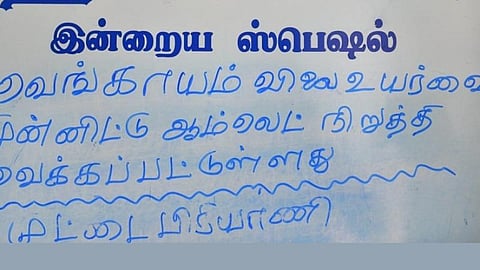 இன்றைய ஸ்பெஷல்
வெங்காயம் விலை உயர்வை
முன்னிட்டு ஆம்லெட் நிறுத்தி
வைக்கப்பட்டுள்ளது
முட்டை பிரியாணி